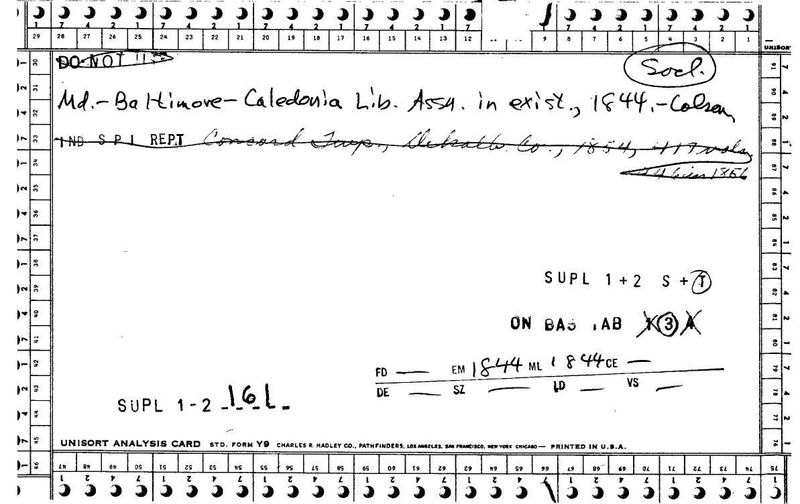 7 4 2 1 7 4 2 1 7 4 2 1 7 4 2 1 7 4 2 1 7 4 2 1
29 28 27 26 25 24 23 22 21 20 19 18 17 16 15 14 13 12 9 8 7 6 5 4 3 2 1
UNISORT
DO NOT
Socl.
Md.-Baltimore-Caledonia Lib. Assn. in exist., 1844.-Colson
IND S.P.I. REPT Concord Twp., Dekalb Co., 1854, 417 vols.
246 in 1856
SUPL 1+2 S+T
ON BAS TAB 1 3 4
FD — EM 1844 ML 1844 CE —
DE — SZ — LD — VS —
SUPL 1-2 161
UNISORT ANALYSIS CARD STD. FORM Y9 CHARLES R. HADLEY CO., PATHFINDERS, LOS ANGELES, SAN FRANCISCO, NEW YORK CHICAGO — PRINTED IN U.S.A.
47 48 49 50 51 52 53 54 55 56 57 58 59 60 61 62 63 64 65 66 67 68 69 70 71 72 73 74 75